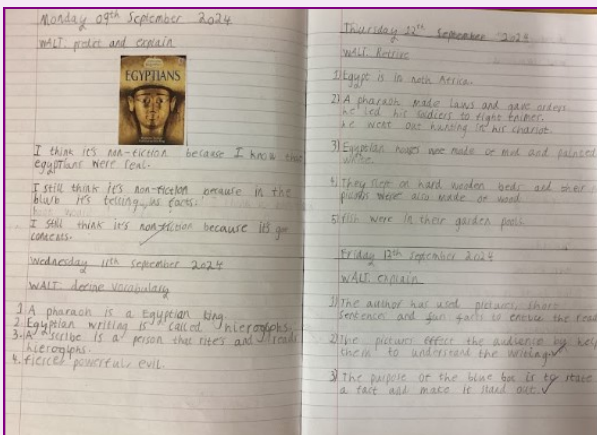 Monday 09th September 2024
WALT: predict and explain
EGYPTIANS
I think it's non-fiction because I know that
egyptians were real.
I still think it's non-fiction because in the
blurb it's telling us facts.
I still think it's non-fiction because it's got
contents.
Wednesday 11th September 2024
WALT: decine vocabulary
1. A pharaoh is a Egyptian king.
2. Egyptian writing is called hieroglphs.
3. A scribe is a person that rites and reads
hieroglphs.
4. fierce, powerful, evil.
Thursday 12th September 2024
WALT: Retrive
1) Egypt is in noth Africa.
2) A pharaoh made laws and gave orders.
he led his soldiers to fight
he went out hunting in his chariot.
3) Egyptian made of mud and painted
white.
4) They slept on hard wooden beds and their
were also made of wood.
5) fish were in their garden pool.
Friday 12th September 2024
WALT: explain
1) The author has used pictures, short
sentences and fun facts to entice the
2) The pictures effect the audience by
them to understand the writing.
3) The purpose of the blue box is to state
a fact and make it stand out.